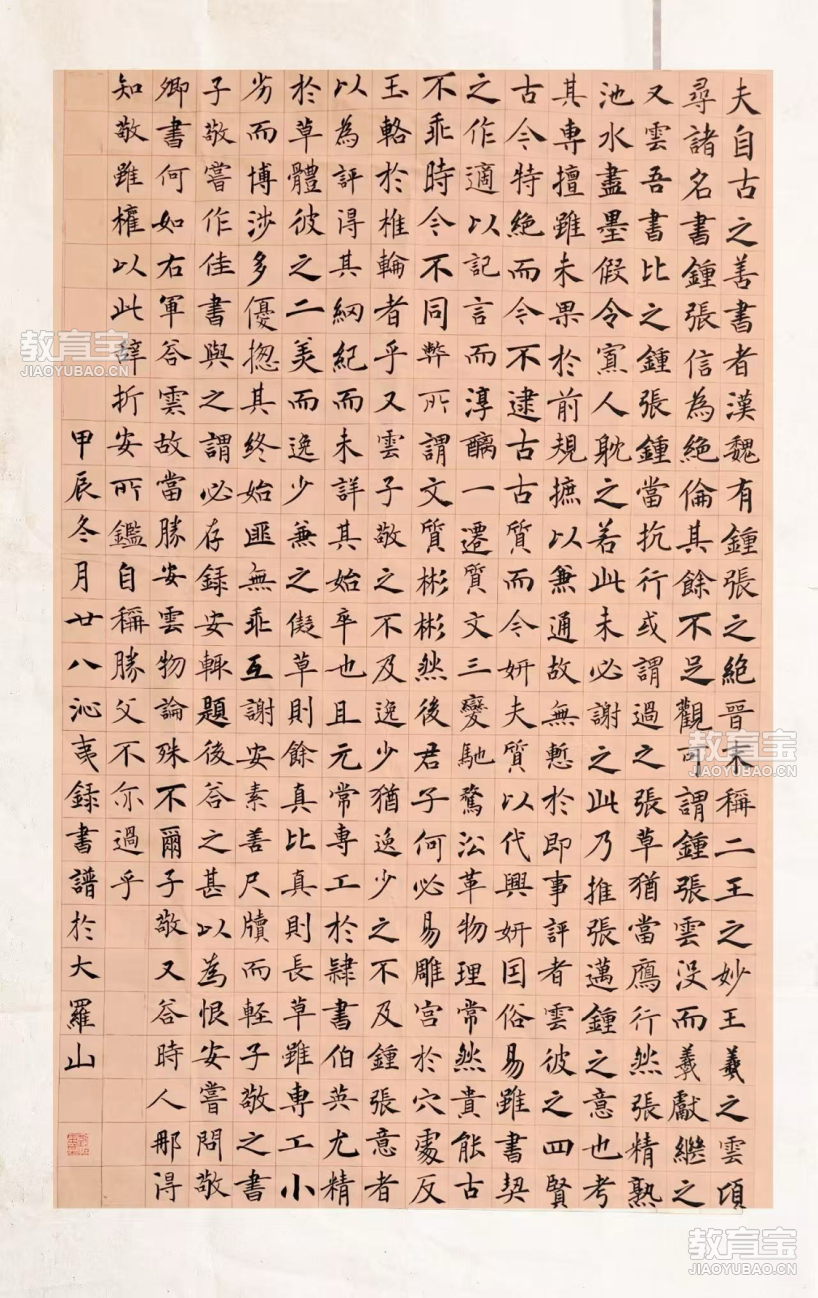 夫自古之善書者漢魏有鍾張之絶晉末稱二王之妙王羲之雲頃
尋諸名書鍾張信為絶倫其餘不足觀可謂鍾張雲沒而羲獻繼之
又雲吾書比之鍾張鍾當抗行或謂過之張草猶當鴈行然張精熟
池水盡墨假令寡人耽之若此未必謝之此乃推張邁鍾之意也考
其專擅雖未果於前規摭以兼通故無慙於即事評者雲彼之四賢
古今特絶而今不逮古古質而今妍夫質以代興妍因俗易雖書契
之作適以記言而淳醨一遷質文三變馳騖沿革物理常然貴能古
不乖時今不同弊所謂文質彬彬然後君子何必易雕宮於穴處反
玉輅於椎輪者乎又雲子敬之不及逸少猶逸少之不及鍾張意者
以為評得其綱紀而未詳其始卒也且元常專工於隸書伯英尤精
於草體彼之二美而逸少兼之儗草則餘真比真則長草雖專工小
劣而博涉多優揔其終始匪無乖互謝安素善尺牘而輕子敬之書
子敬嘗作佳書與之謂必存録安輒題後答之甚以為恨安嘗問敬
卿書何如右軍答雲故當勝安雲物論殊不爾子敬又答時人那得
知敬雖權以此辞折安所鑑自稱勝父不尒過乎
甲辰冬月廿八沁夷録書譜於大羅山
教育宝
JIAOYUBAO.CN
教育宝
JIAOYUBAO.CN
教育宝
JIAOYUBAO.CN